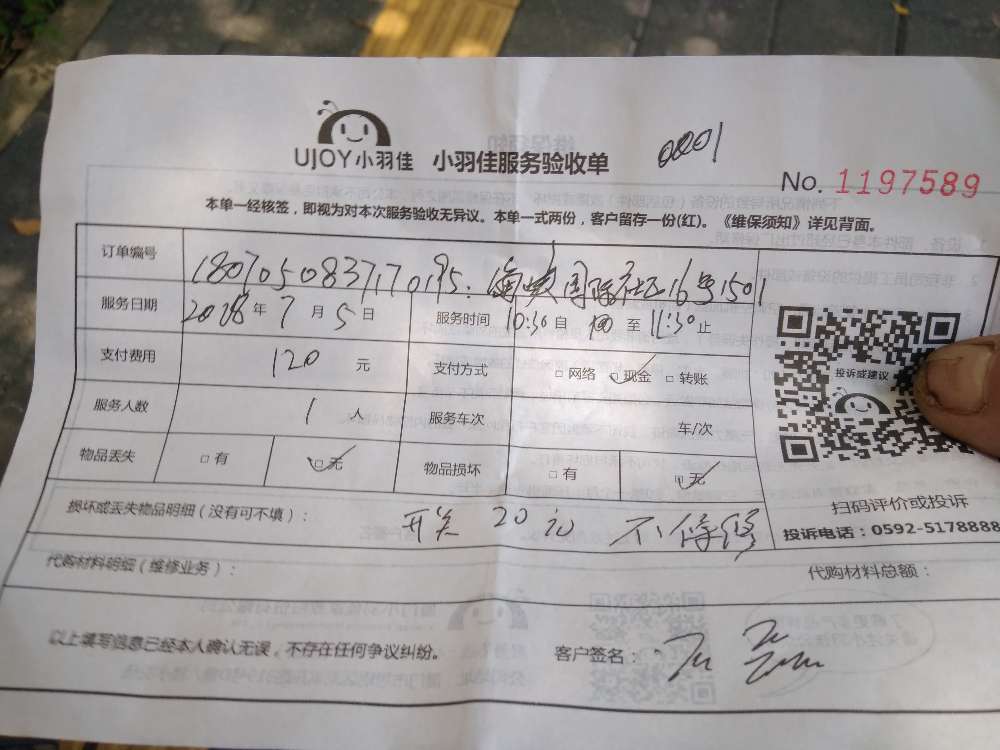 UJOY小羽佳 小羽佳服务验收单 0001
No. 1197589
本单一经核签，即视为对本次服务验收无异议。本单一式两份，客户留存一份(红)。《维保须知》详见背面。
订单编号 1807050837170195. 海峡国际社区16号1501
服务日期 2018年7月5日 服务时间 10:30自 至 11:30止
支付费用 120 元 支付方式 □网络 □现金 □转账
服务人数 1 人 服务车次 车/次
物品丢失 □有 □无 物品损坏 □有 □无
投诉或建议
扫码评价或投诉
投诉电话：0592-5178888
损坏或丢失物品明细（没有可不填）： 开关 20元 不保修
代购材料明细（维修业务）： 代购材料总额：
以上填写信息已经本人确认无误，不存在任何争议纠纷。 客户签名：